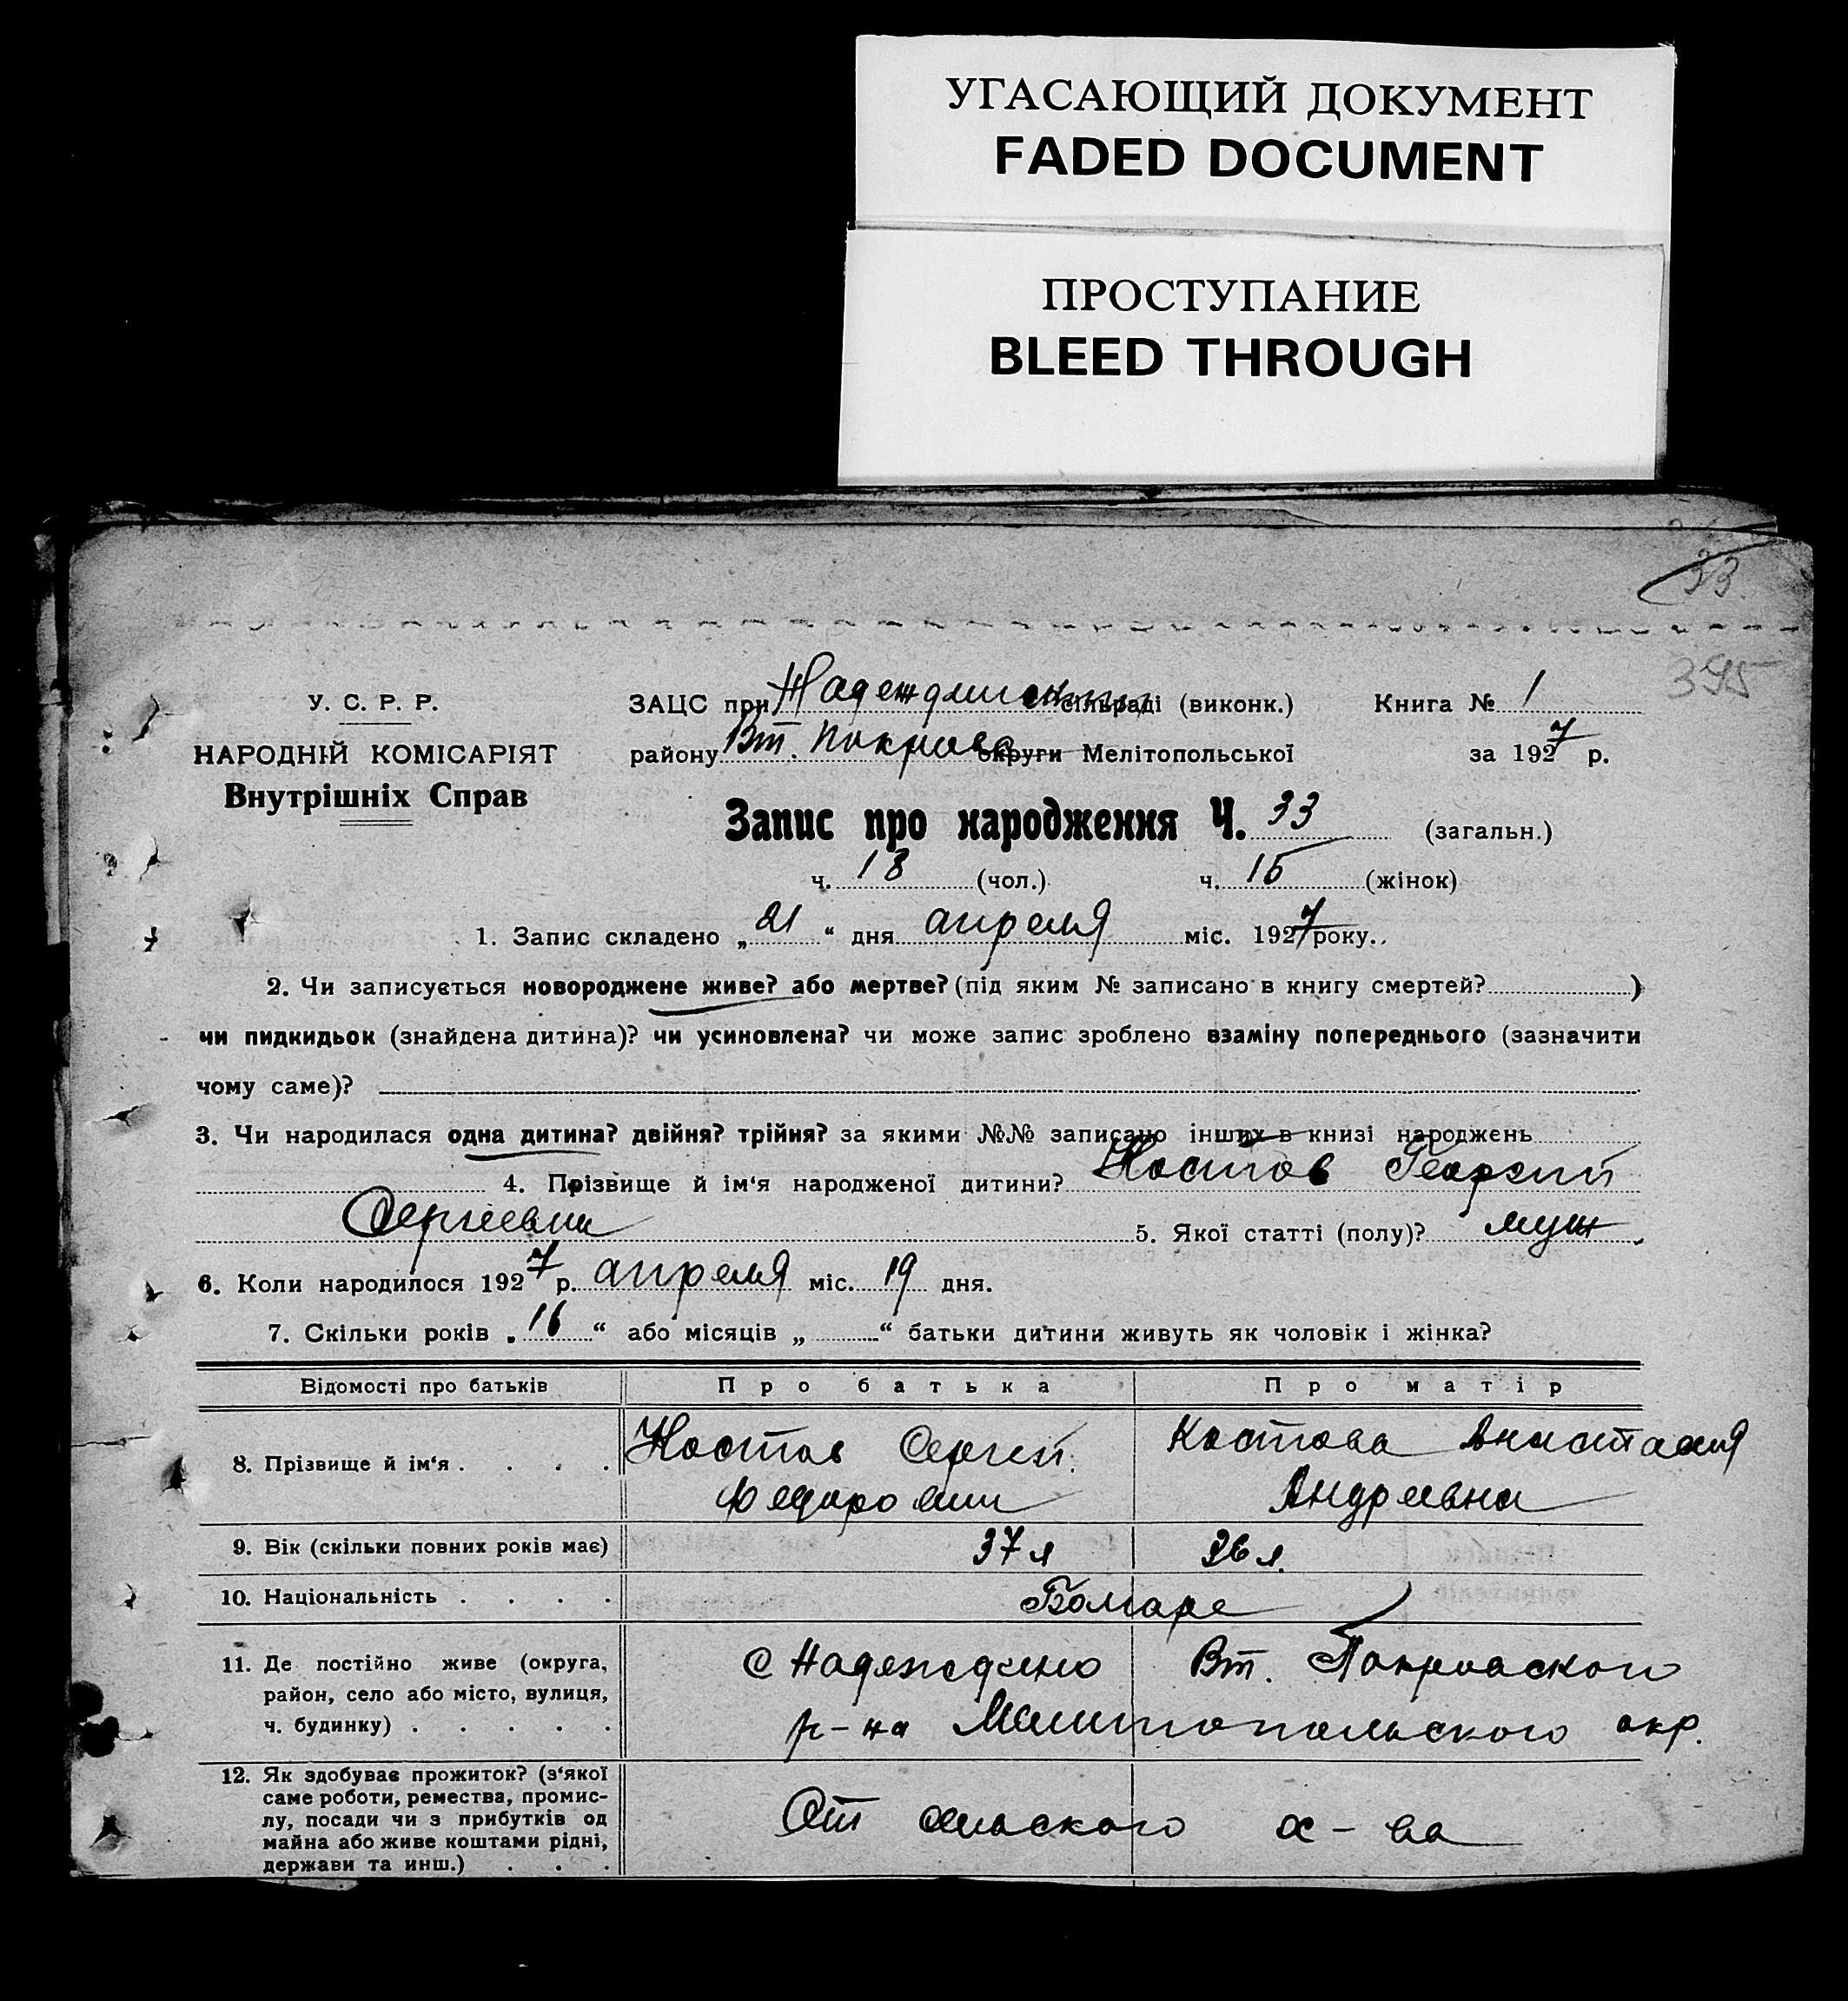 УГАСАЮЩИЙ ДОКУМЕНТ
FADED DOCUMENT
ПРОСТУПАНИЕ
BLEED THROUGH
33
395
У. С. Р. Р.
НАРОДНІЙ КОМІСАРІЯТ
Внутрішніх Справ
ЗАЦС при Надеждинском сільраді (виконк.) Книга № 1
району Вт. Покровс округи Мелітопольської за 1927 р.
Запис про народження Ч. 33 (загальн.)
ч. 18 (чол.) ч. 15 (жінок)
1. Запис складено „21“ дня апреля міс. 1927 року..
2. Чи записується новороджене живе? або мертве? (під яким № записано в книгу смертей? )
чи пидкидьок (знайдена дитина)? чи усиновлена? чи може запис зроблено взаміну попереднього (зазначити
чому саме)?
3. Чи народилася одна дитина? двійня? трійня? за якими №№ записано інших в книзі народжень
4. Прізвище й ім'я народженої дитини? Костов Георгий
Сергеевич 5. Якої статті (полу)? муж.
6. Коли народилося 1927 р. апреля міс. 19 дня.
7. Скільки років „16“ або місяців „ “ батьки дитини живуть як чоловік і жінка?
Відомості про батьків Про батька Про матір
8. Прізвище й ім'я . . . . Костов Сергей Костова Анастасия
Федорович Андреевна
9. Вік (скільки повних років має) 37 л 36 л.
10. Національність . . . . Болгаре
11. Де постійно живе (округа, район, село або місто, вулиця, ч. будинку) . . . . . с Надеждино Вт. Покровского
р-на Мелитопольского окр.
12. Як здобуває прожиток? (з'якої саме роботи, ремества, промис-
лу, посади чи з прибутків од
майна або живе коштами рідні,
держави та инш.) . . . От сельского х-ва